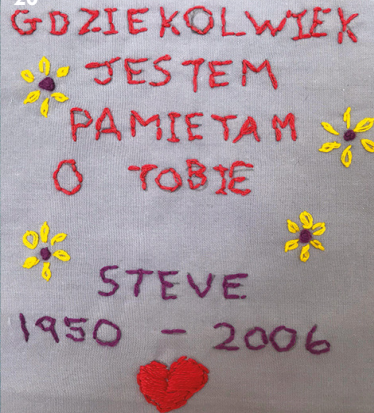 GDZIEKOLWIEK
JESTEM
PAMIETAM
O TOBIE
STEVE
1950 - 2006